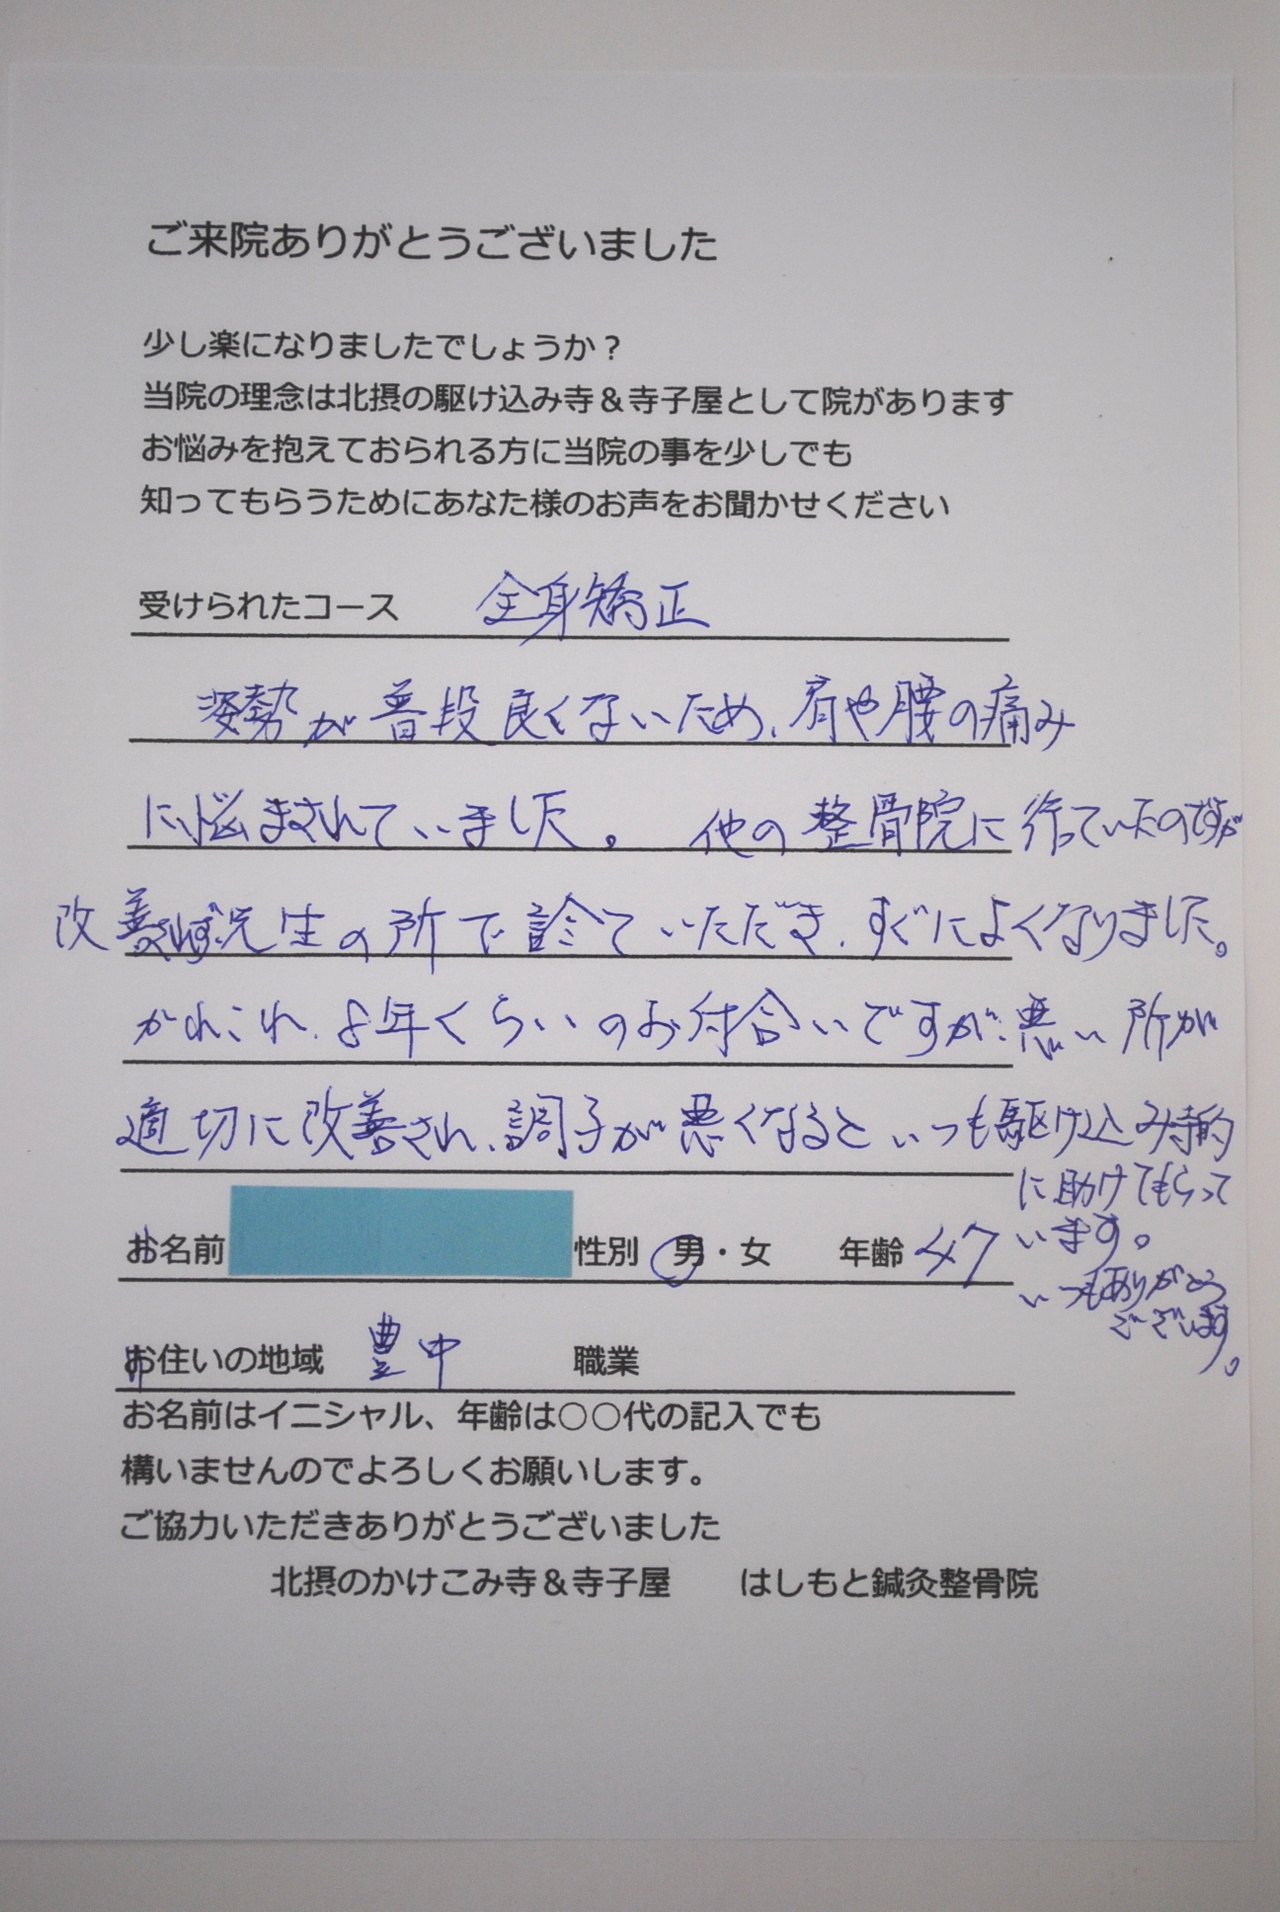 ご来院ありがとうございました
少し楽になりましたでしょうか？
当院の理念は北摂の駆け込み寺＆寺子屋として院があります
お悩みを抱えておられる方に当院の事を少しでも
知ってもらうためにあなた様のお声をお聞かせください
受けられたコース 全身矯正
姿勢が普段良くないため、肩や腰の痛み
に悩まされていました。 他の整骨院に行っていたのですが
改善されず先生の所で診ていただき、すぐによくなりました。
かれこれ、8年くらいのお付合いですが、悪い所が
適切に改善され、調子が悪くなるといつも駆け込み寺的
に助けてもらって
います。
いつもありがとう
ございます。
お名前 性別 男・女 年齢 47
お住いの地域 豊中 職業
お名前はイニシャル、年齢は○○代の記入でも
構いませんのでよろしくお願いします。
ご協力いただきありがとうございました
北摂のかけこみ寺＆寺子屋 はしもと鍼灸整骨院